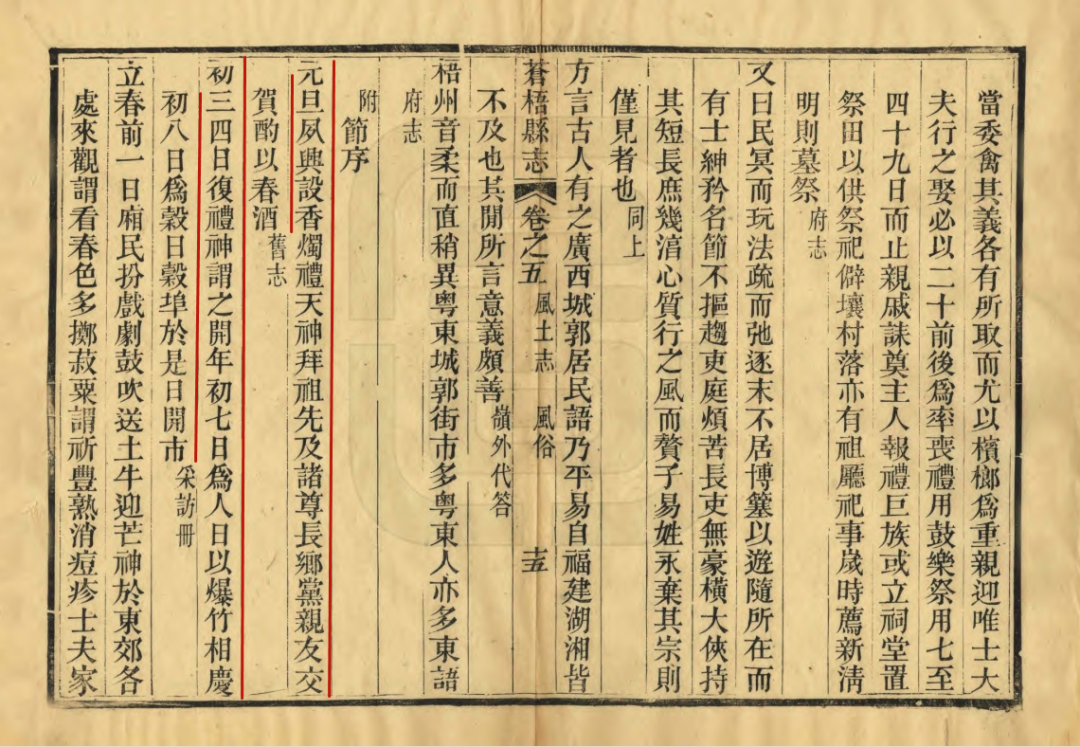 當委禽其義各有所取而尤以檳榔爲重親迎唯士大
夫行之娶必以二十前後爲率喪禮用鼓樂祭用七至
四十九日而止親戚誄奠主人報禮巨族或立祠堂置
祭田以供祭祀僻壤村落亦有祖廳祀事嵗時薦新淸
明則墓祭府志
又曰民冥而玩法疏而弛逐末不居博簺以遊隨所在而
有士紳矜名節不摳趨吏庭煩苦長吏無豪橫大俠持
其短長庶幾湻心質行之風而贅子易姓永棄其宗則
僅見者也同上
方言古人有之廣西城郭居民語乃平易自福建湖湘皆
蒼梧縣志 卷之五 風土志 風俗 十五
不及也其間所言意義頗善嶺外代答
梧州音柔而直稍異粤東城郭街市多粤東人亦多東語
府志
附節序
元旦夙興設香燭禮天神拜祖先及諸尊長鄉黨親友交
賀酌以春酒舊志
初三四日復禮神謂之開年初七日爲人日以爆竹相慶
初八日爲穀日穀埠於是日開市采訪冊
立春前一日廂民扮戲劇鼓吹送土牛迎芒神於東郊各
處來觀謂看春色多擲菽粟謂祈豐熟消痘疹士夫家